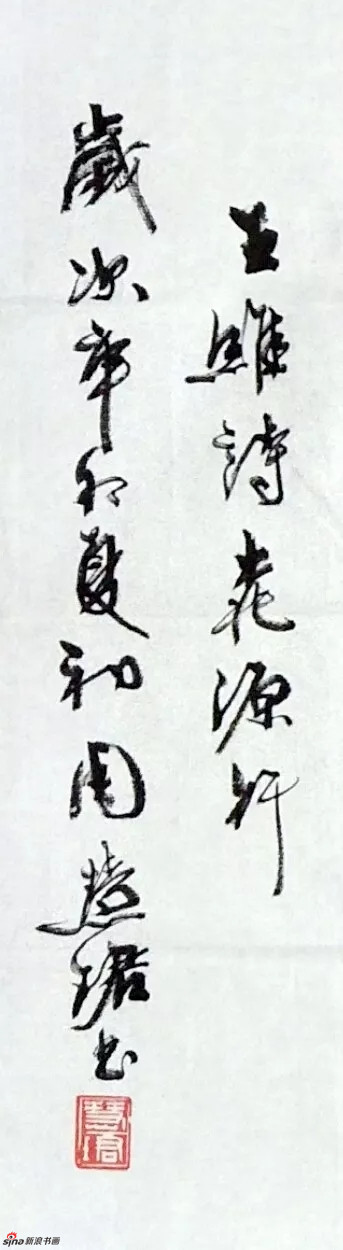 王維詩桃源行
歲次辛卯夏初周慧珺書
慧珺
sina新浪书画